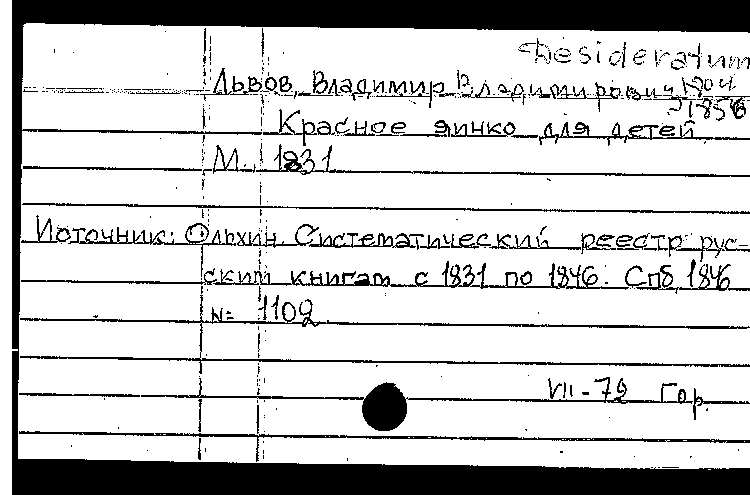 Desideratum
Львов, Владимир Владимирович, 1804
-1856
Красное яичко для детей
М., 1831
Источник: Ольхин. Систематический реестр рус-
ским книгам с 1831 по 1846. Спб, 1846
N= 1102
VII-72 Гор.